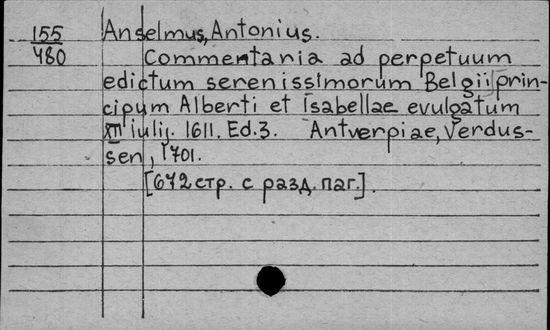 155 Anselmus, Antonius.
480 Commentaria ad perpetuum
edictum serenissimorum Belgii prin-
cipum Alberti et Isabellae evulgatum
XII iulij. 1611. Ed. 3. Antverpiae, Verdus-
sen, 1701.
[672 стр. с разд. паг.].